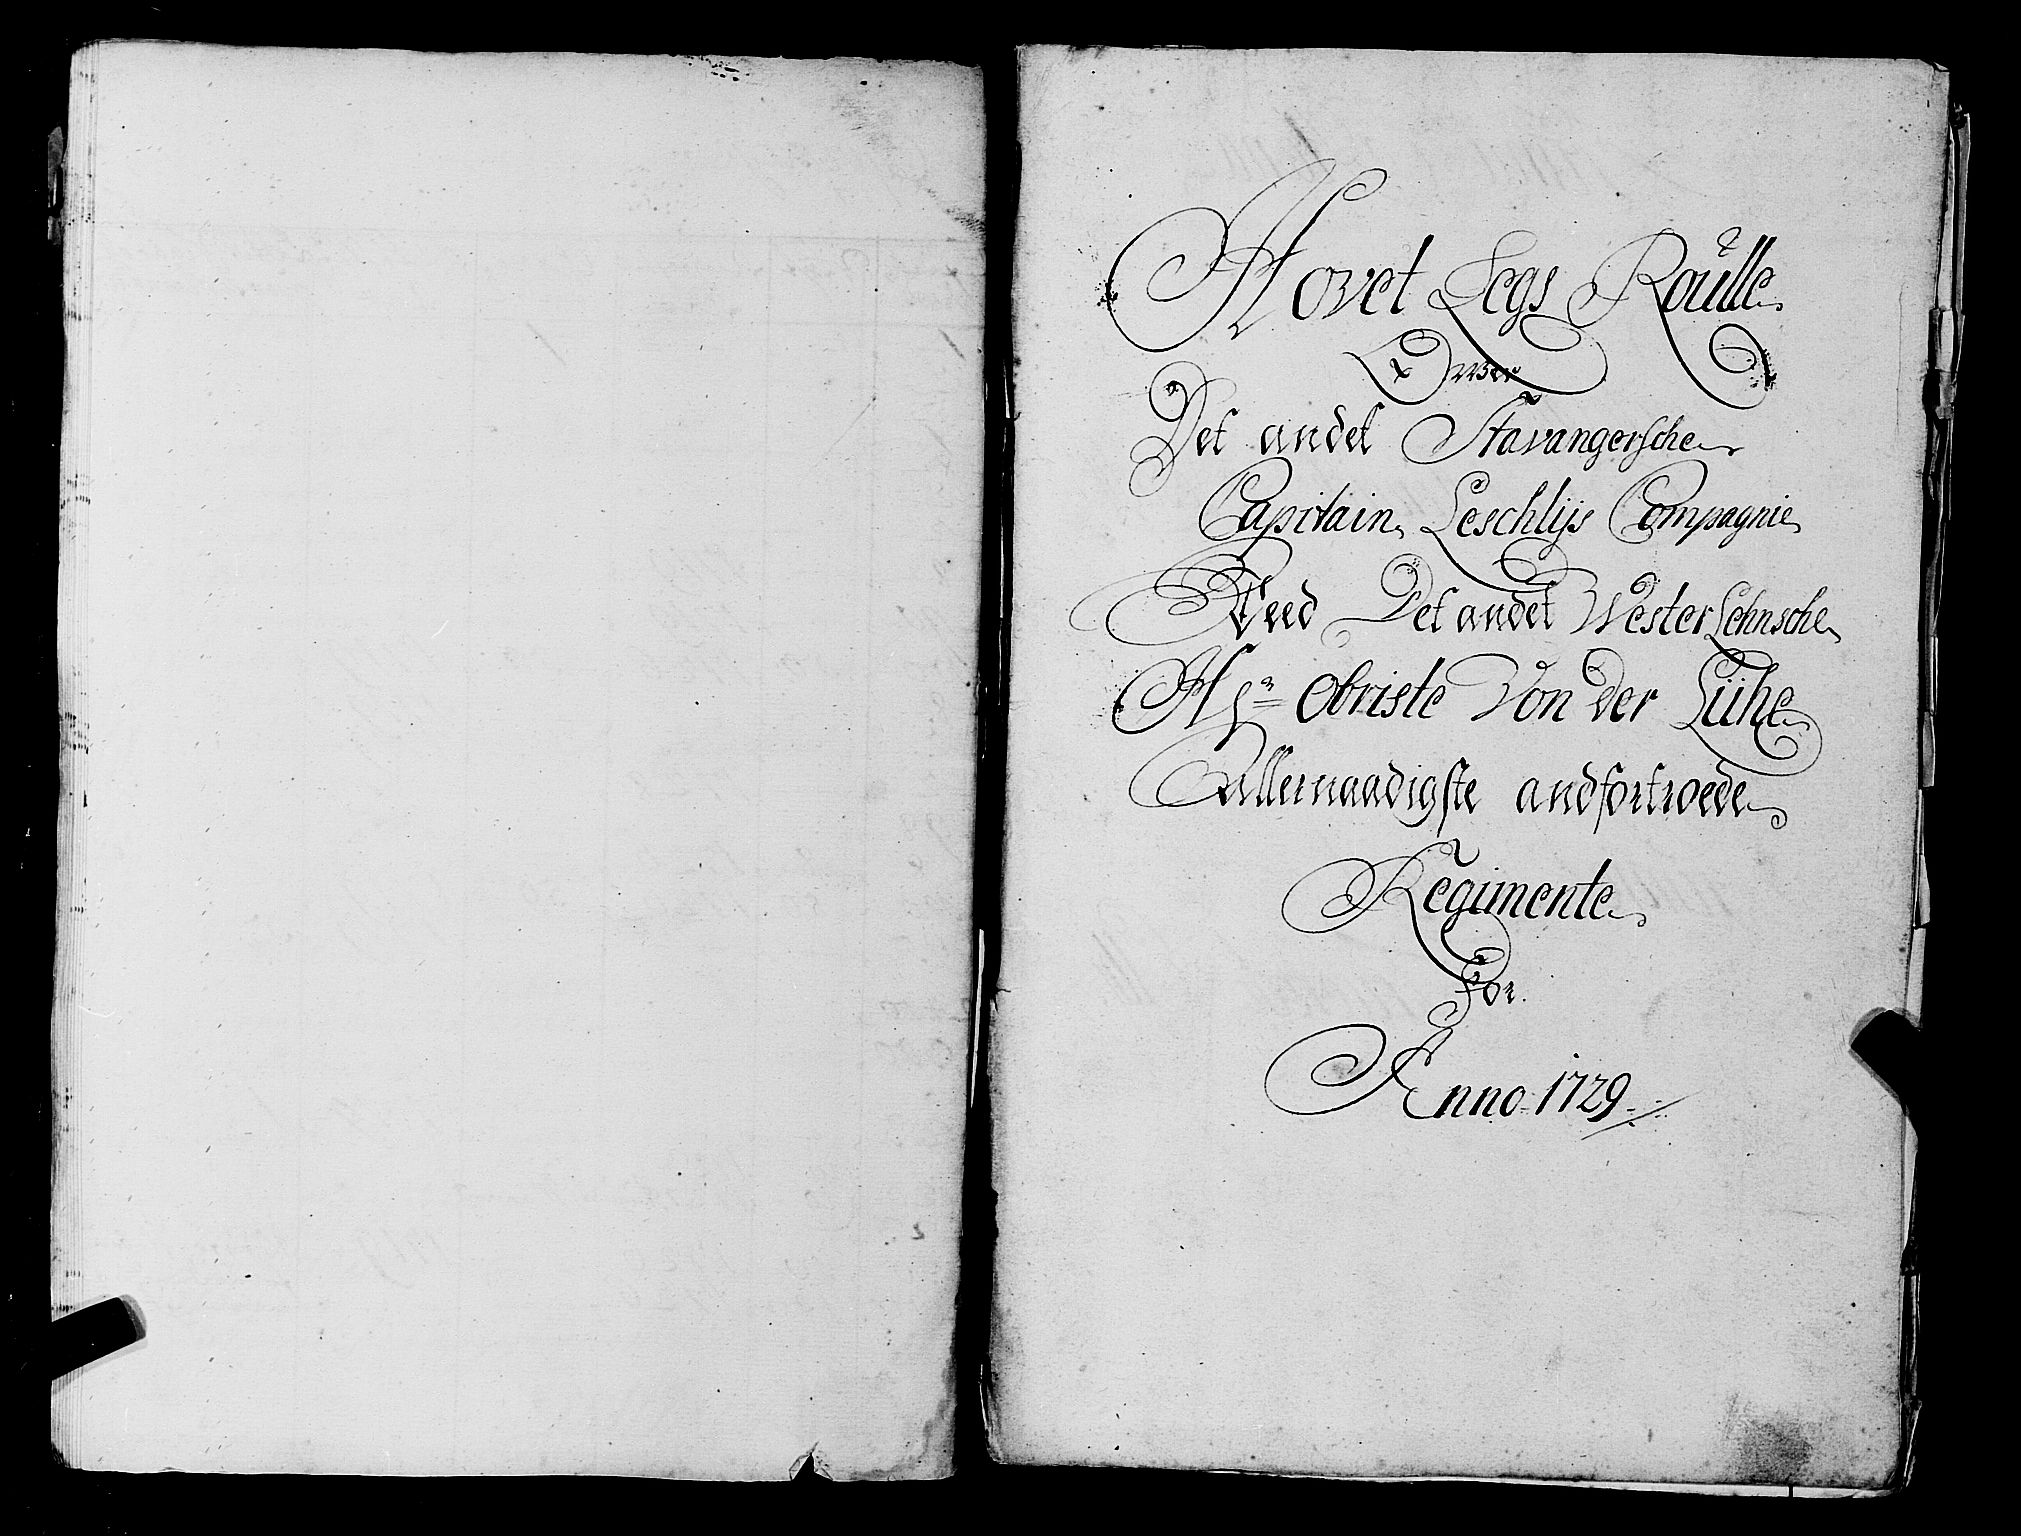 Hovet Legs Roülle
Over
Det andet Stavangersche
Capitain Leschlijs Compagnie
Ved Det andet Wester Lehnsche
Hr Obriste Von der Lühe
Allernaadigste andfortroede
Regimente
For.
Anno 1729